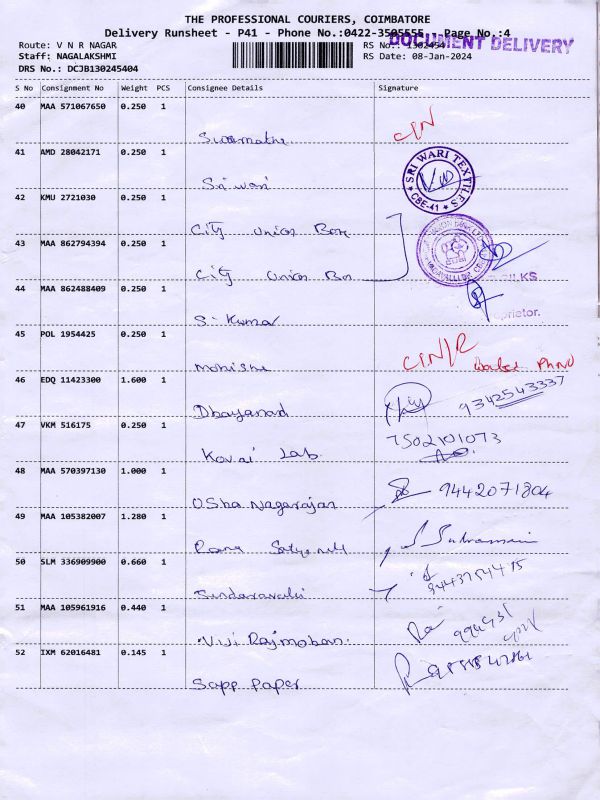 THE PROFESSIONAL COURIERS, COIMBATORE
Delivery Runsheet - P41 - Phone No.:0422-3505555, Page No.:4
DOCUMENT DELIVERY
Route: V N R NAGAR RS No.: 1302454
Staff: NAGALAKSHMI RS Date: 08-Jan-2024
DRS No.: DCJB130245404
S No Consignment No Weight PCS Consignee Details Signature
40 MAA 571067650 0.250 1
CIN
41 AMD 28042171 0.250 1
Sri wari
SRI WARI TEXTILES
* CBE-41 *
42 KMU 2721030 0.250 1
City Union
43 MAA 862794394 0.250 1
City Union
44 MAA 862488409 0.250 1
S. Kumar
45 POL 1954425 0.250 1
CIN/R
46 EDQ 11423300 1.600 1
Dhayanand 9342543337
47 VKM 516175 0.250 1
7502101073
Kovai Lab
48 MAA 570397130 1.000 1
Usha Nagarajan 9442071804
49 MAA 105382007 1.280 1
50 SLM 336909900 0.660 1
51 MAA 105961916 0.440 1
Viji Rajmohan.
52 IXM 62016481 0.145 1
Sapp Paper